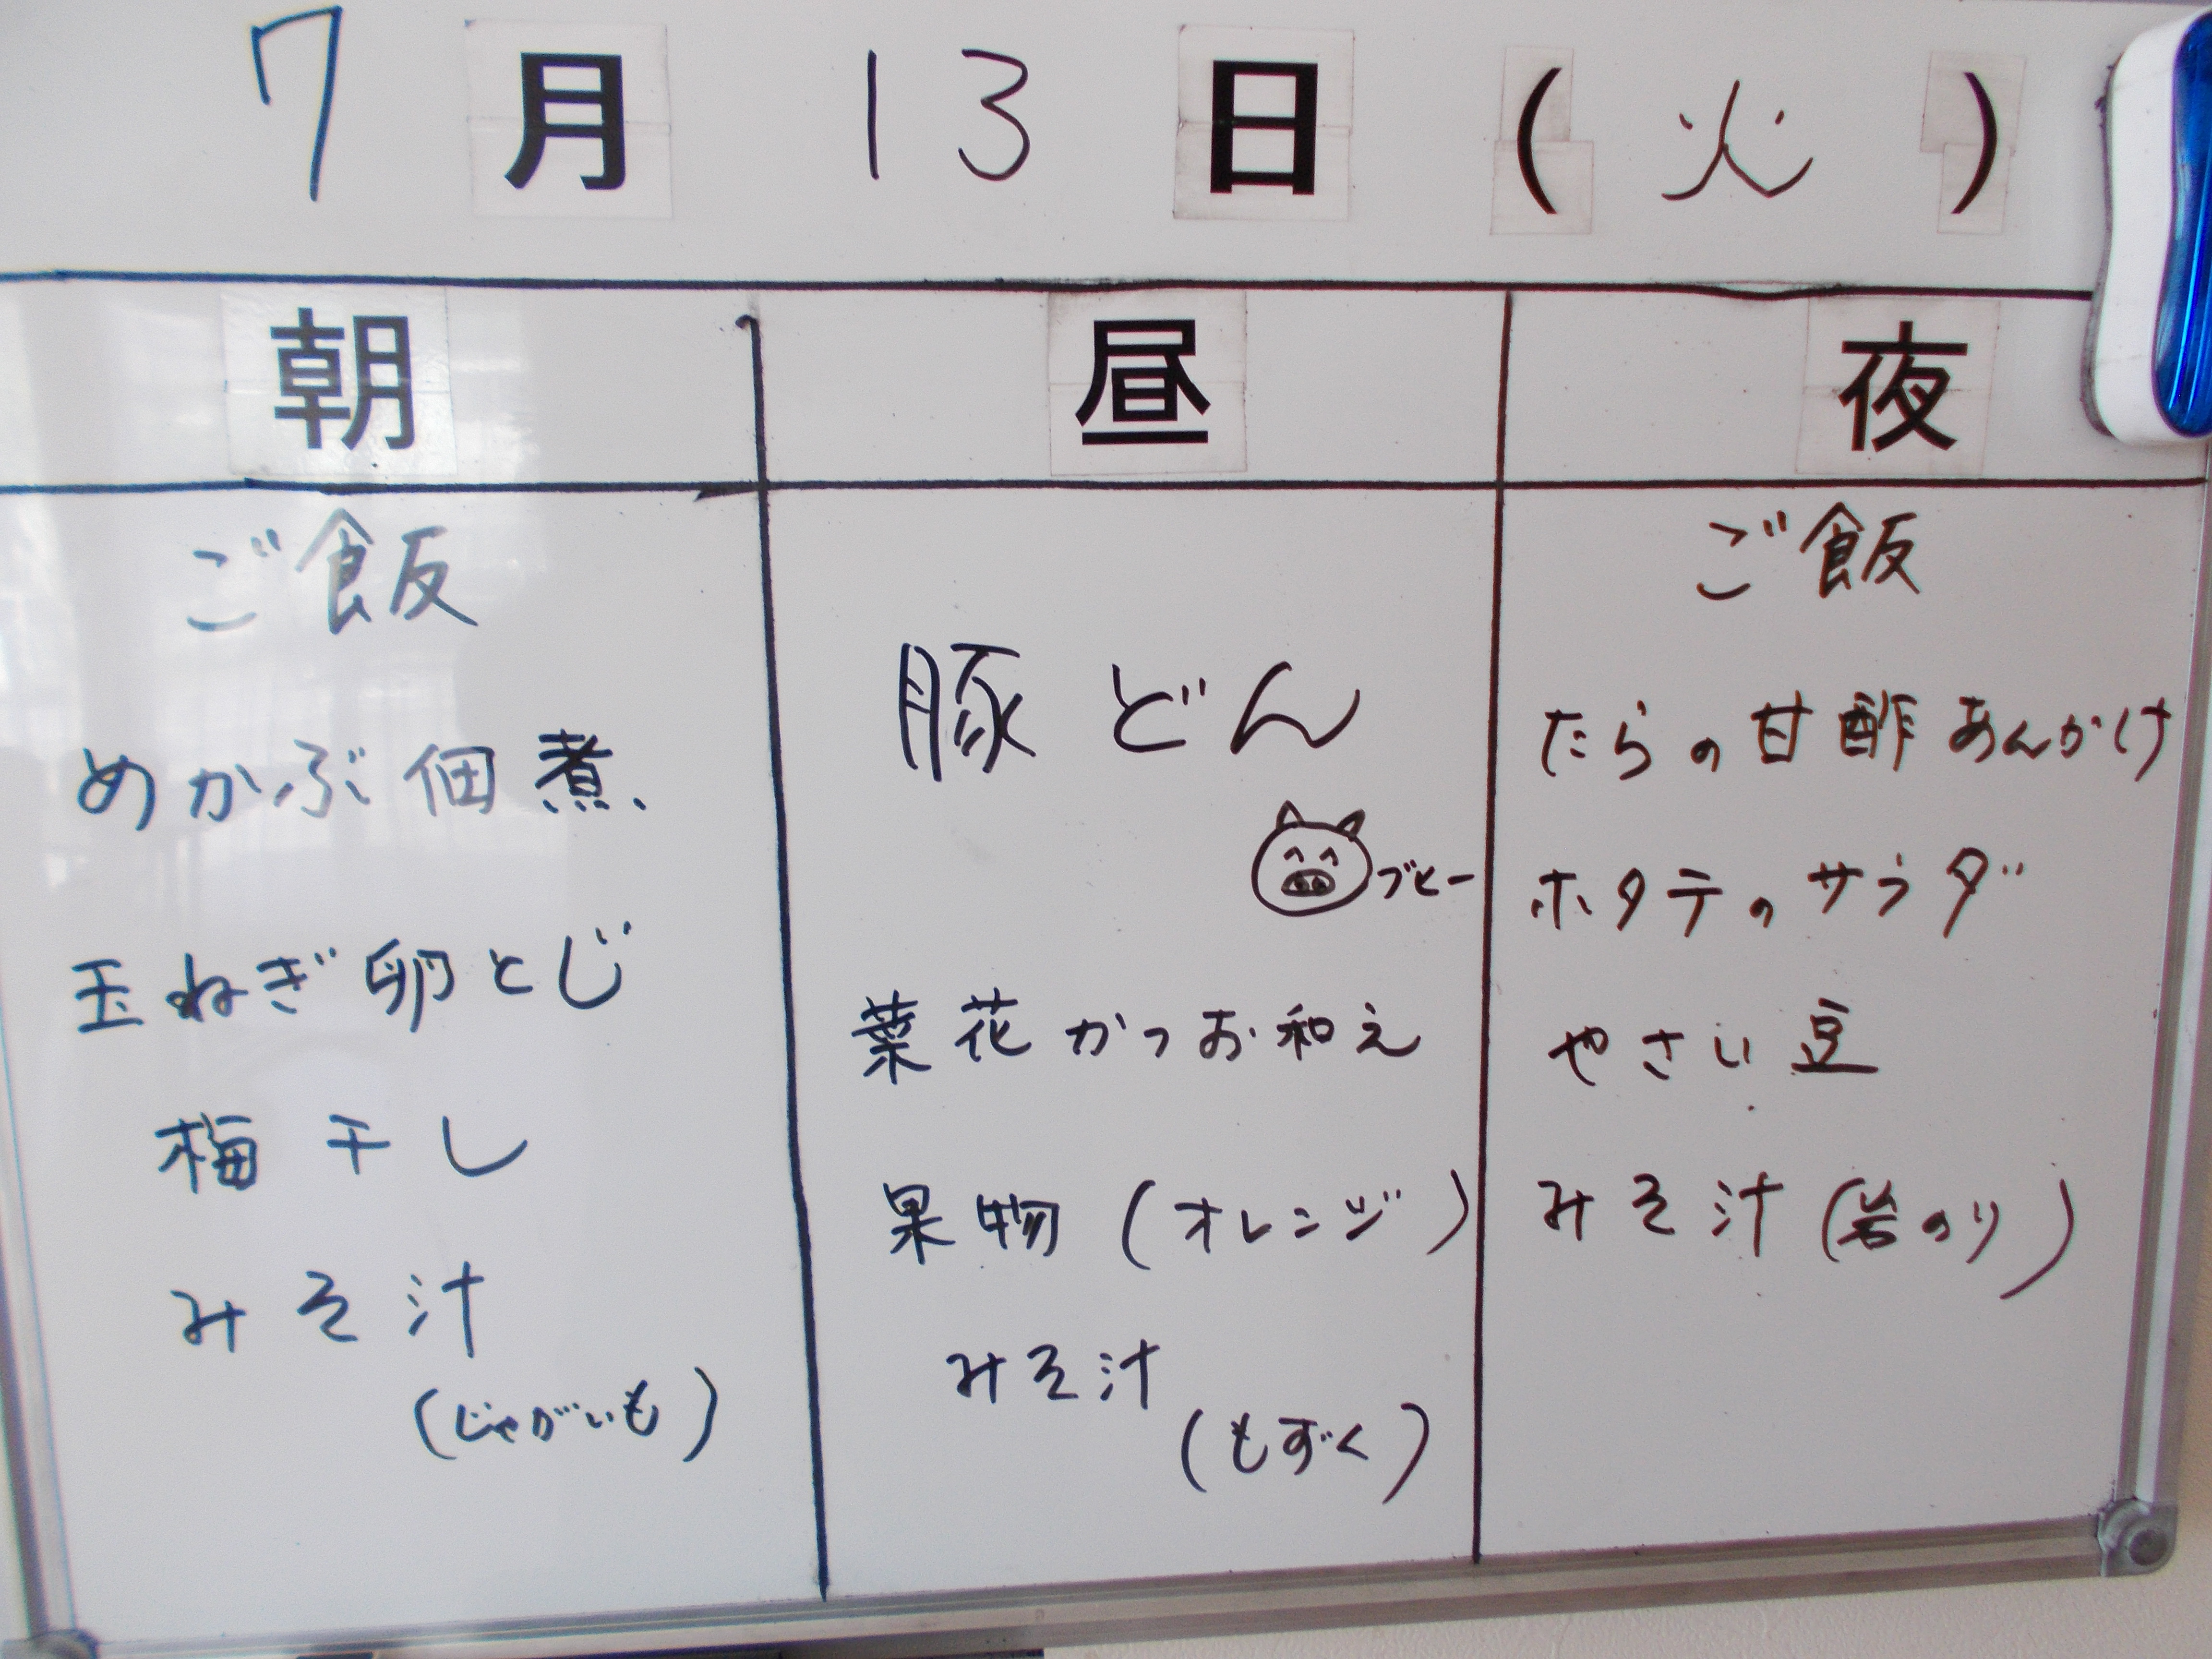 7月13日(火)
朝
ご飯
めかぶ佃煮
玉ねぎ卵とじ
梅干し
みそ汁
(じゃがいも)
昼
豚どん
ブヒー
菜花かつお和え
果物(オレンジ)
みそ汁
(もずく)
夜
ご飯
たらの甘酢あんかけ
ホタテのサラダ
やさい豆
みそ汁(岩のり)